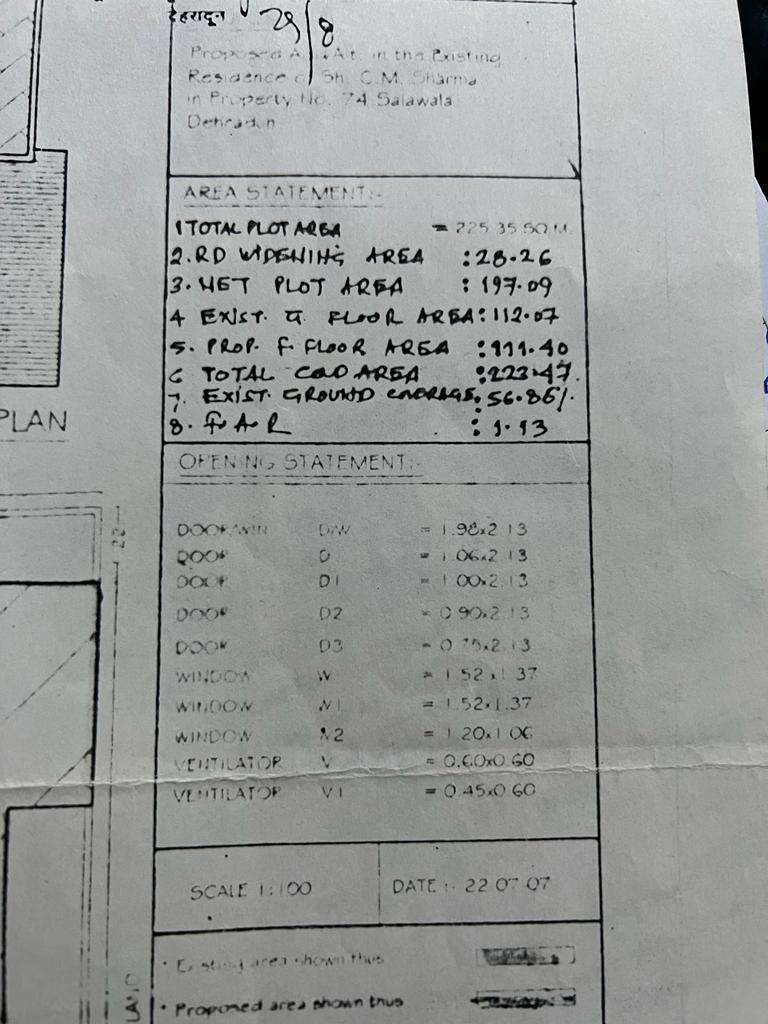 देहरादून 29/8
Proposed A & Alt. in the Existing
Residence of Sh. C.M. Sharma
in Property No. 74 Salawala
Dehradun
AREA STATEMENT:-
1 TOTAL PLOT AREA = 225.35 SQ.M.
2. RD WIDENING AREA : 28.26
3. NET PLOT AREA : 197.09
4 EXIST. G. FLOOR AREA : 112.07
5. PROP. F. FLOOR AREA : 111.40
6 TOTAL COVD AREA : 223.47.
7. EXIST. GROUND COVERAGE : 56.86%.
8. F A R : 1.13
PLAN
OPENING STATEMENT:-
22
DOOR/WIN D/W = 1.98x2.13
DOOR D = 1.06x2.13
DOOR D1 = 1.00x2.13
DOOR D2 = 0.90x2.13
DOOR D3 = 0.75x2.13
WINDOW W = 1.52x1.37
WINDOW W1 = 1.52x1.37
WINDOW W2 = 1.20x1.06
VENTILATOR V = 0.60x0.60
VENTILATOR V1 = 0.45x0.60
SCALE 1:100 DATE :- 22 07 07
• Existing area shown thus
• Proposed area shown thus